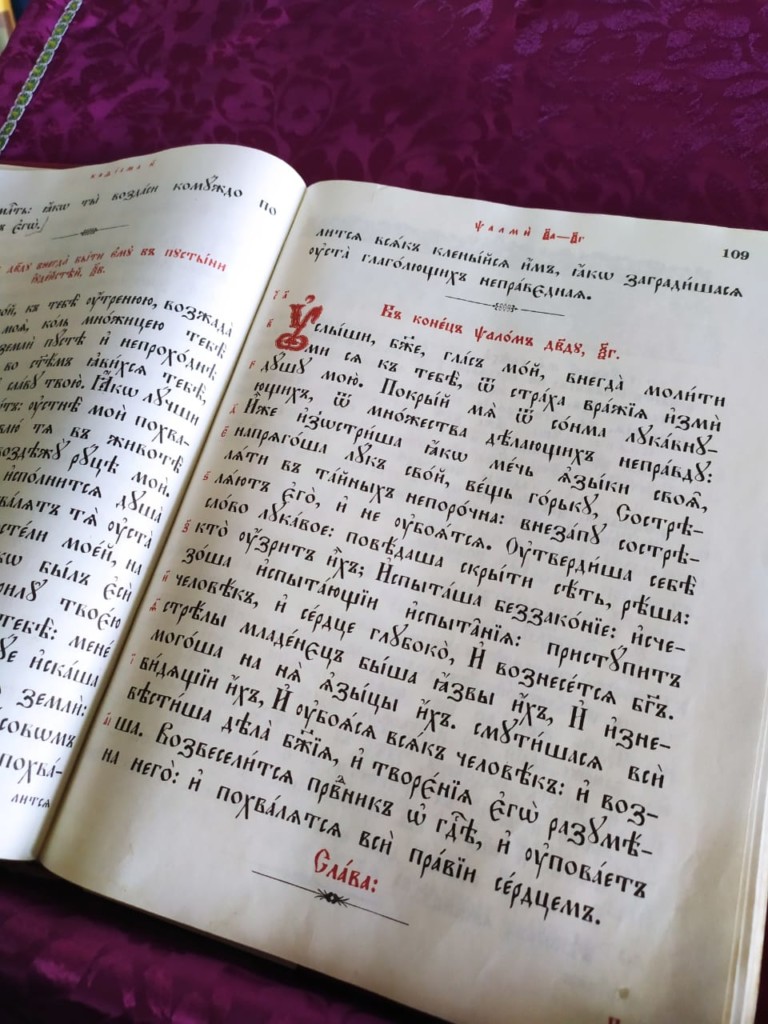 каѳісма и҃
ꙗ҆́кѡ ты̀ возда́си комꙋ́ждо по
є҆гѡ̀.
дв҃дꙋ внегда̀ бы́ти є҆мꙋ̀ въ пꙋсты́ни
і҆ꙋде́йстѣй, ѯ҃в.
мо́й, къ тебѣ̀ ᲂу҆́тренюю, возжада̀
моѧ̀, ко́ль мно́жицею тебѣ̀
землѝ пꙋ́стѣ и҆ непрохо́днѣ
во ст҃ѣ́мъ ꙗ҆ви́хсѧ тебѣ̀,
сла́вꙋ твою̀. Ꙗ҆́кѡ лꙋ́чши
ᲂу҆стнѣ̀ моѝ похва-
тѧ̀ въ животѣ̀
воздѣжꙋ̀ рꙋ́цѣ моѝ.
и҆спо́лнитсѧ дꙋша̀
тѧ̀ ᲂу҆ста̀
посте́ли мое́й, на
бы́лъ є҆сѝ
твоє́ю
тебѣ̀: менє́
и҆ска́ша
землѝ:
похва́-
литсѧ
Ѱалмы̀ ѯ҃а—ѯ҃г
109
литсѧ всѧ́къ клены́йсѧ и҆́мъ, ꙗ҆́кѡ загради́шасѧ
ᲂу҆ста̀ глаго́лющихъ непра́вєднаѧ.
Въ коне́цъ ѱало́мъ дв҃дꙋ, ѯ҃г.
в҃ Оу҆слы́ши, бж҃е, гла́съ мо́й, внегда̀ моли́ти
ми сѧ къ тебѣ̀, ѿ стра́ха вра́жїѧ и҆змѝ
г҃ дꙋ́шꙋ мою̀. Покры́й мѧ̀ ѿ со́нма лꙋка́внꙋ-
ющихъ, ѿ мно́жества дѣ́лающихъ непра́вдꙋ:
д҃ И҆̀же и҆зѡстри́ша ꙗ҆́кѡ ме́чь ꙗ҆зы́ки своѧ̑,
є҃ напрѧго́ша лꙋ́къ сво́й, ве́щь го́рькꙋ, Сострѣ-
лѧ́ти въ та́йныхъ непоро́чна: внеза́пꙋ сострѣ-
ѕ҃ лѧ́ютъ є҆го̀, и҆ не ᲂу҆боѧ́тсѧ. Оу҆тверди́ша себѣ̀
сло́во лꙋка́вое: повѣ́даша скры́ти сѣ́ть, рѣ́ша:
з҃ кто̀ ᲂу҆́зритъ и҆̀хъ; И҆спыта́ша беззако́нїе: и҆сче-
зо́ша и҆спыта́ющїи и҆спыта̑нїѧ: пристꙋ́питъ
и҃ человѣ́къ, и҆ се́рдце глꙋбоко̀, И҆ вознесе́тсѧ бг҃ъ.
стрѣ́лы младе́нєцъ бы́ша ꙗ҆́звы и҆́хъ, И҆ и҆зне-
мого́ша на нѧ̀ ꙗ҆зы́цы и҆́хъ. смꙋти́шасѧ всѝ
і҃ ви́дѧщїи и҆̀хъ, И҆ ᲂу҆боѧ́сѧ всѧ́къ человѣ́къ: и҆ воз-
вѣсти́ша дѣла̀ бж҃їѧ, и҆ творє́нїѧ є҆гѡ̀ разꙋмѣ́-
а҃і ша. Возвесели́тсѧ првⷣникъ ѡ҆ гдⷭ҇ѣ, и҆ ᲂу҆пова́етъ
на него̀: и҆ похва́лѧтсѧ всѝ пра́вїи се́рдцемъ.
Сла́ва: